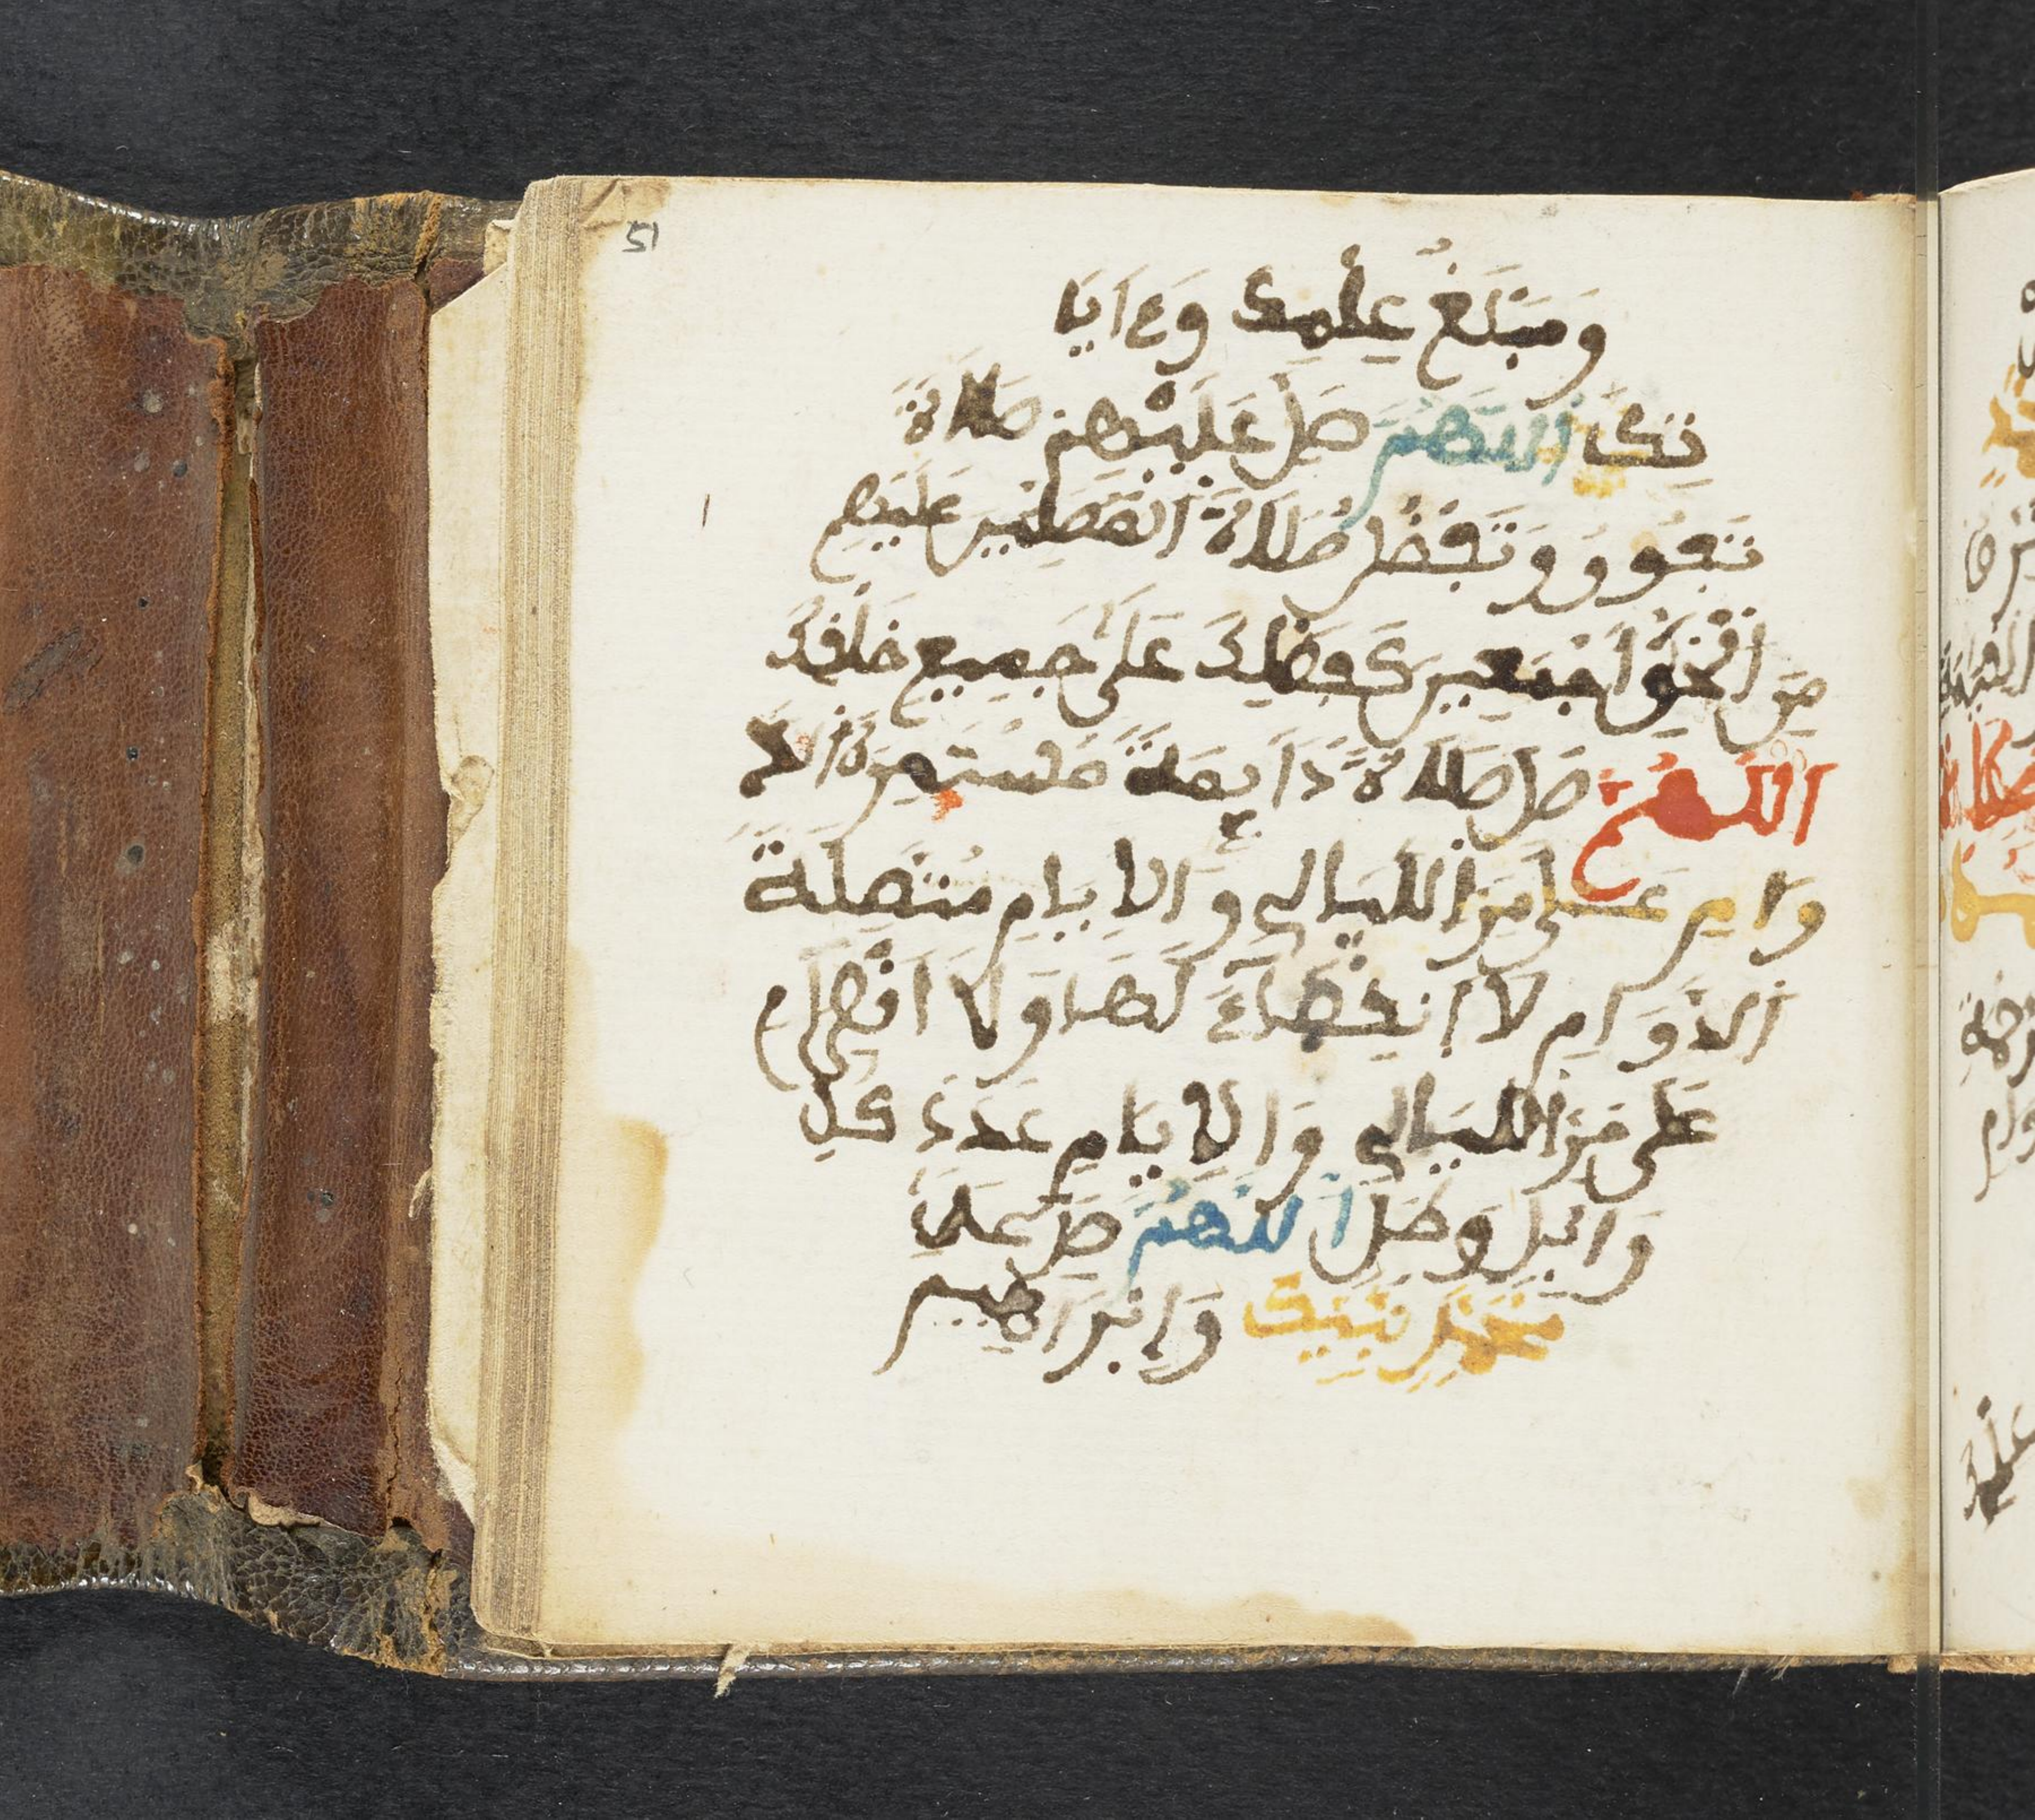 51
وَمَبْلَغُ عِلْمِكَ وَءَايَا
تِكَ اَللَّهُمَّ صَلِّ عَلَيْهِمْ صَلَاةً
تَفُوقُ وَتَفْضُلُ صَلَاةَ الْمُصَلِّينَ عَلَيْهِم
مِنَ اَلْخَلْقِ اَجْمَعِينَ كَفَضْلِكَ عَلَى جَمِيعِ خَلْقِكَ
اَللَّهُمَّ صَلِّ صَلَاةً دَايِمَةً مُسْتَمِرَّةَ الدَّ
وَامِ عَلَى مَرِّ اللَّيَالِي وَالَايَّامِ مُتَّصِلَةَ
اَلدَّوَامِ لَا اَنْقِضَاءَ لَهَا وَلَا اَنْصِرَامَ
عَلَى مَرِّ اللَّيَالِي وَالَايَّامِ عَدَدَ كُلِّ
وَابِلٍ وَطَلٍّ اَللَّهُمَّ صَلِّ عَلَى
مُحَمَّدٍ نَبِيِّكَ وَإِبْرَاهِيمَ